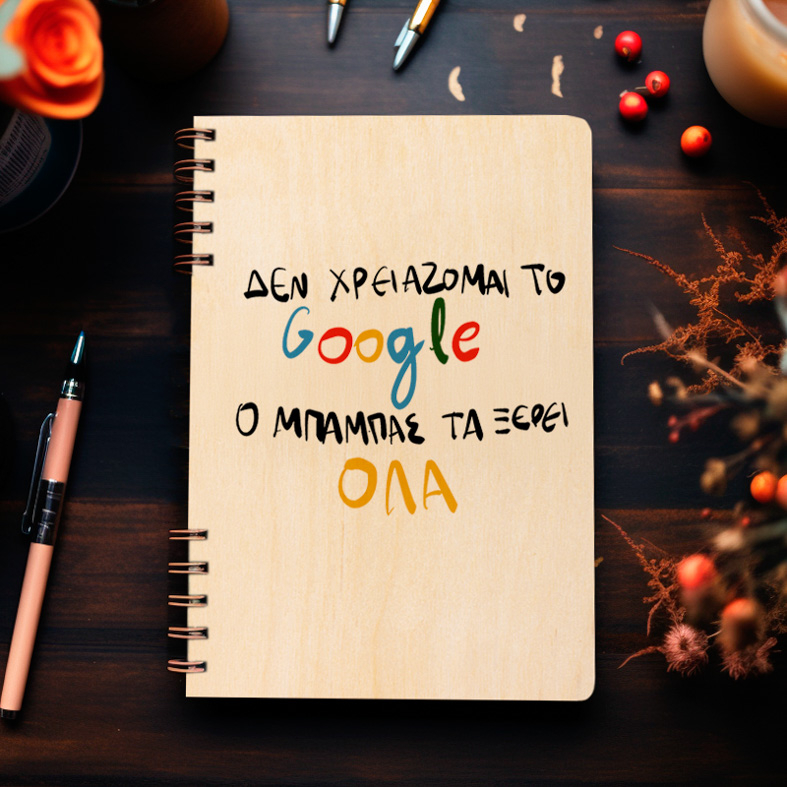 ΔΕΝ ΧΡΕΙΑΖΟΜΑΙ ΤΟ
Google
Ο ΜΠΑΜΠΑΣ ΤΑ ΞΕΡΕΙ
ΟΛΑ